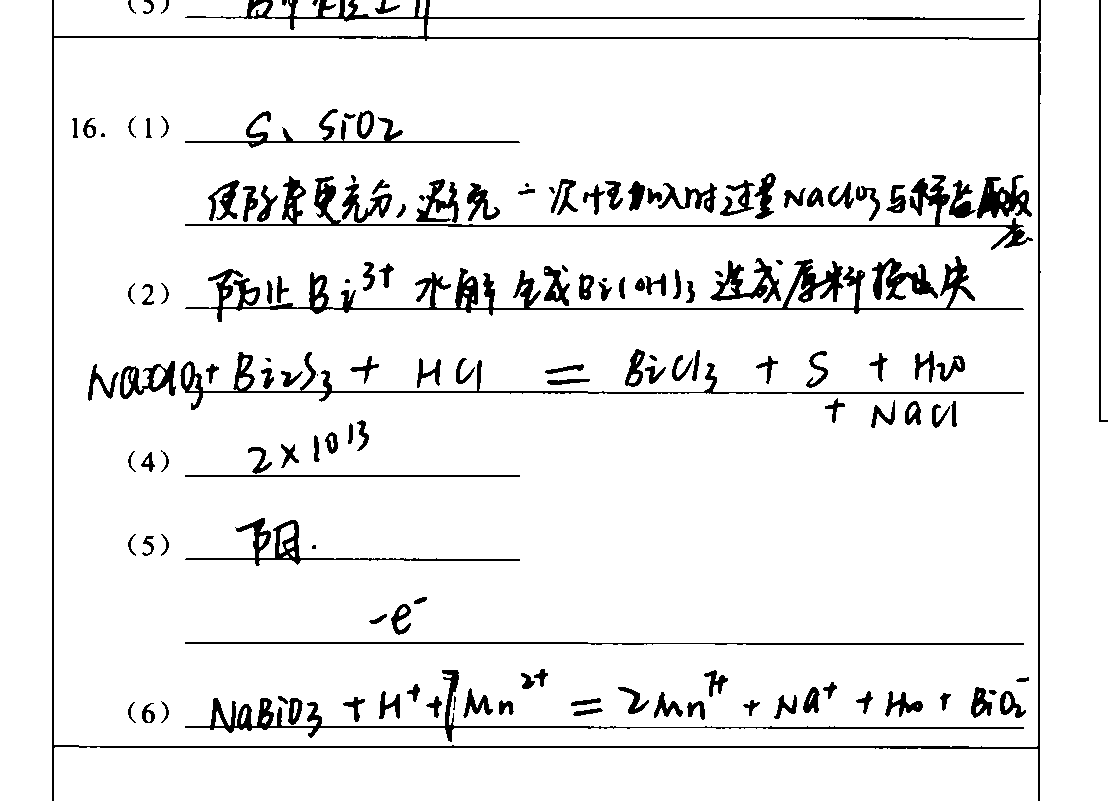 (3)
16.（1） S、SiO2
使除杂更充分，避免一次性加入时过量NaClO3与稀盐酸反
应
（2） 防止Bi³⁺ 水解生成Bi(OH)3 造成原料损失
NaClO3+ Bi2S3 + HCl = BiCl3 + S + H2O
+ NaCl
（4） 2×10¹³
（5） 阳.
-e⁻
（6） NaBiO3 + H⁺ + Mn²⁺ = 2Mn⁷⁺ + Na⁺ + H2O + BiO2⁻